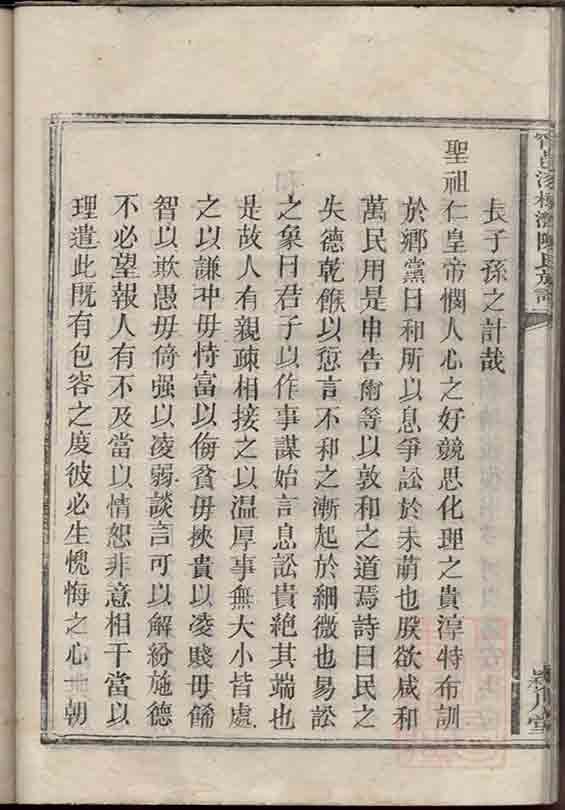 長子孫之計哉
聖祖仁皇帝憫人心之好競思化理之貴淳特布訓
於鄉黨曰和所以息爭訟於未萌也朕欲咸和
萬民用是申告爾等以敦和之道焉詩曰民之
失德乾餱以愆言不和之漸起於細微也易訟
之象曰君子以作事謀始言息訟貴絶其端也
是故人有親疎相接之以温厚事無大小皆處
之以謙冲毋恃富以侮貧毋挾貴以凌賤毋餙
智以欺愚毋倚强以凌弱談言可以解紛施德
不必望報人有不及當以情恕非意相干當以
理遣此既有包容之度彼必生愧悔之心一朝
陳氏族譜
潁川堂